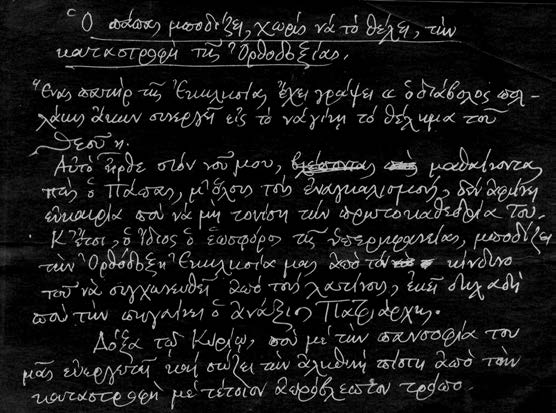 Ὁ πάπας μποδίζει, χωρίς νά τό θέλει, τήν
καταστροφή τῆς Ὀρθοδοξίας.
Ἕνας πατήρ τῆς Ἐκκλησίας ἔχει γράψει «ὁ διάβολος πολ-
λάκις ἄκων συνεργεῖ εἰς τό νά γίνῃ τό θέλημα τοῦ
Θεοῦ».
Αὐτό ἦρθε στόν νοῦ μου, βλέποντας μαθαίνοντας
πώς ὁ Πάπας, μ' ὅλους τούς ἐναγκαλισμούς, δέν ἀφήνει
εὐκαιρία πού νά μή τονίσῃ τήν πρωτοκαθεδρία του.
Κ' ἔτσι, ὁ ἴδιος ὁ ἑωσφόρος τῆς ὑπερηφανείας, μποδίζει
τήν Ὀρθόδοξη Ἐκκλησία μας ἀπό τόν κίνδυνο
τοῦ νά συγχωνευθεῖ ἀπό τούς λατίνους, ἐκεῖ δηλαδή
πού τήν πηγαίνει ὁ ἀνάξιος Πατριάρχης.
Δόξα τῷ Κυρίῳ, πού μέ τήν πανσοφία του
μᾶς εὐεργετῆ καί σώζει τήν ἀληθινή πίστη ἀπό τήν
καταστροφή μέ τέτοιον ἀπρόβλεπτον τρόπο.